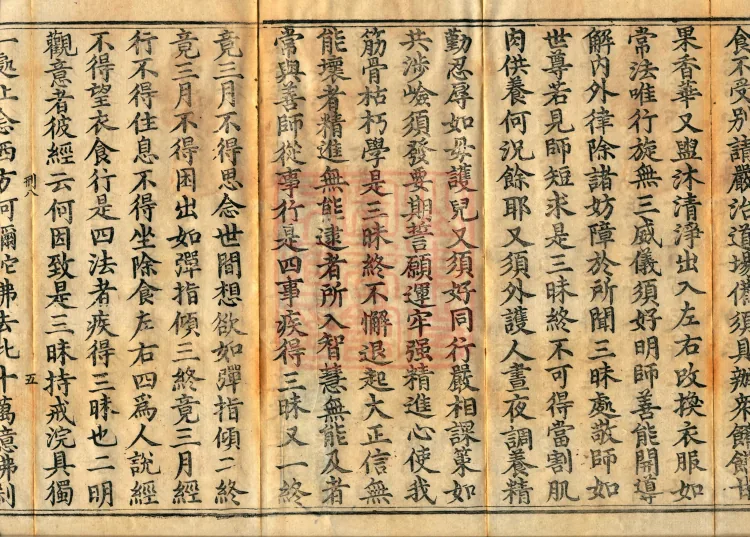 食不受別請嚴治道場備須具辦罪餚饍甘
果香華又盥沐清淨出入左右改換衣服如
常法唯行旋無三威儀須好明師善能開導
解內外律除諸妨障於所聞三昧處敬師如
世尊若見師短求是三昧終不可得當割肌
肉供養何況餘耶又須外護人晝夜調養精
勤忍辱如母護兒又須好同行嚴相課策如
共涉嶮須發要期誓願運牢强精進心使我
筋骨枯朽學是三昧終不懈退起大正信無
能壞者精進無能逮者所入智慧無能及者
常與善師從事行是四事疾得三昧又一終
竟三月不得思念世間想欲如彈指傾二終
竟三月不得因出如彈指傾三終竟三月經
行不得住息不得坐除食左右四爲人說經
不得望衣食行是四法者疾得三昧也二明
觀意者彼經云何因致是三昧持戒浣具獨
刑八 五
一處止念西方阿彌陀佛去此十萬億佛刹